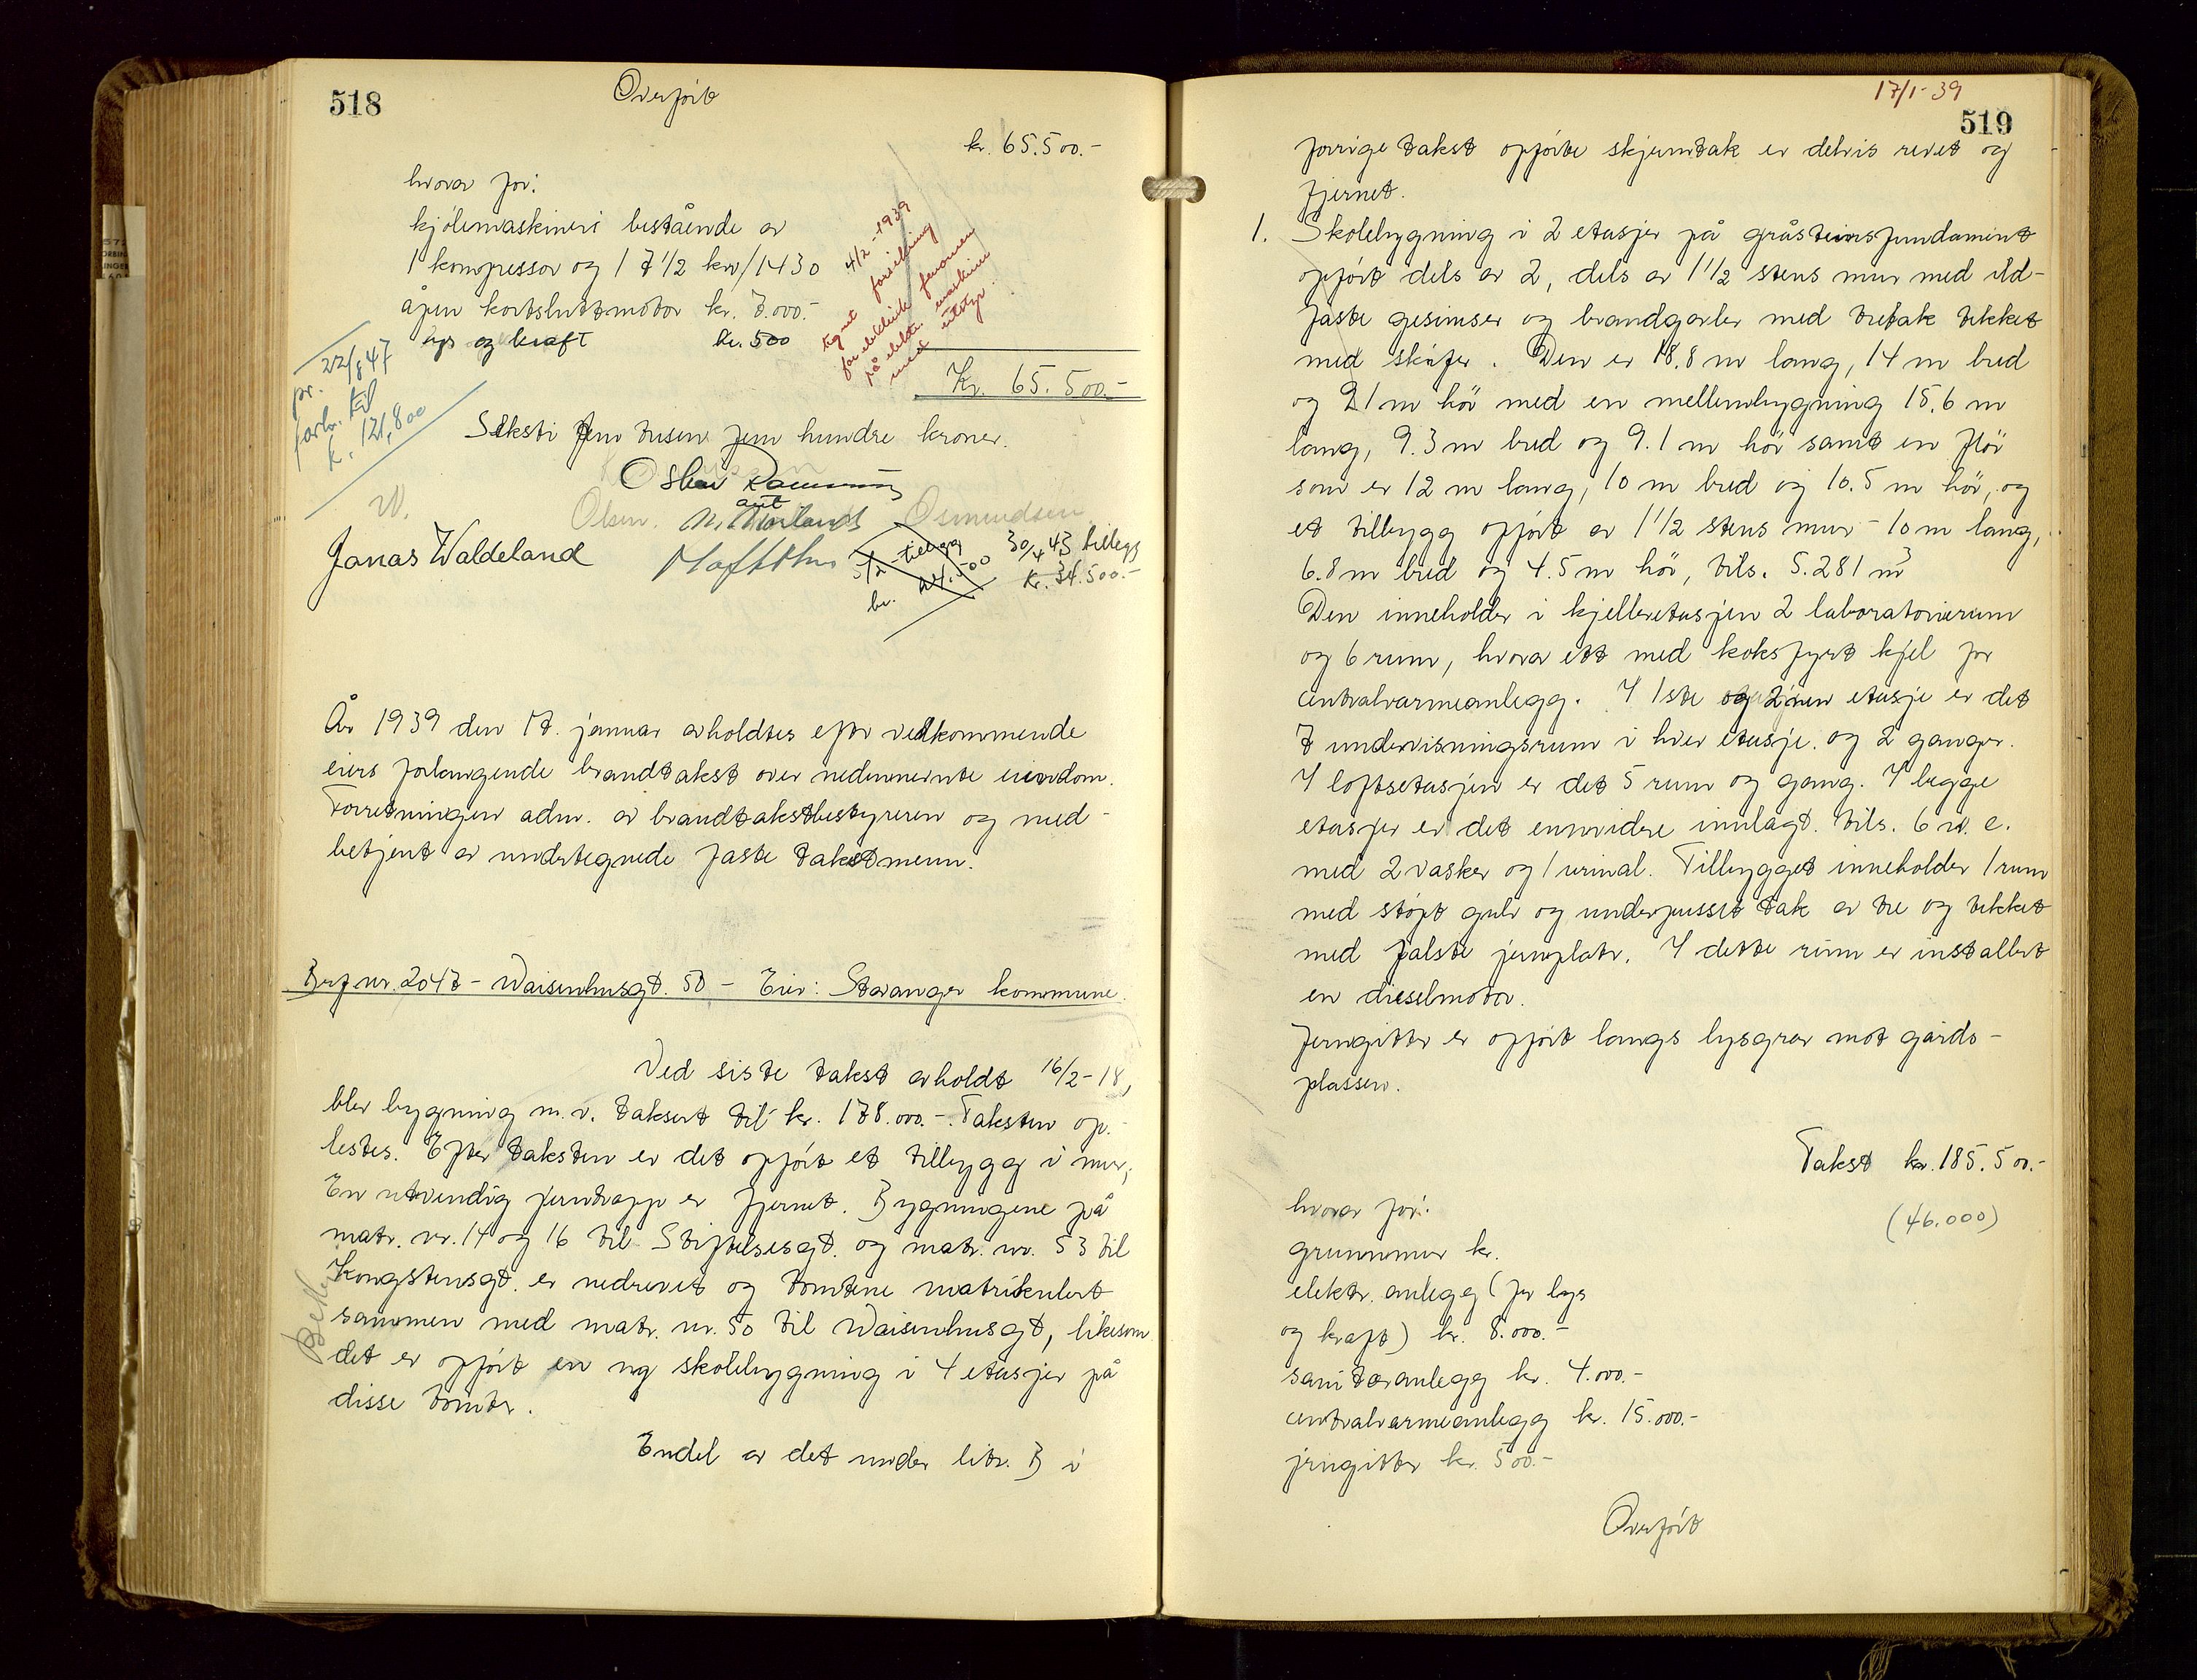 518
Overført
kr. 65.500.-
hvorav for:
kjølemaskineri bestående av
1 kompressor og 1 7 1/2 kw/1430
åpen kortsluttmotor kr. 7.000.-
lys og kraft kr. 500
4/2-1939
tegnet forsikring
for elektrisk fenomen
på elektr. maskin
med utstyr.
pr. 22/8 47
forh. til
k. 121,800
Kr. 65.500.-
Seksti fem tusen fem hundre kroner.
W.
Olsen. Osmundsen
Jonas Waldeland
5/2 tillegg
kr. 24.500
30/4 43 tillegg
kr. 34.500.-
År 1939 den 17. januar avholdtes efter vedkommende
eiers forlangende brandtakst over nedennevnte eiendom.
Forretningen adm. av brandtakstbestyreren og med-
betjent av undertegnede faste takstmenn.
Brf nr. 2047 - Waisenhusgt. 50 - Eier: Stavanger kommune.
Ved siste takst avholdt 16/2-18,
blev bygning m.v. taksert til kr. 178.000.-. Taksten op-
lestes. Efter taksten er det opført et tilbygg i mur,
En utvendig jerntrapp er fjernet. Bygningene på
matr. nr. 14 og 16 til Stiftelsesgt. og matr. nr. 53 til
Kongstensgt. er nedrevet og tomtene matrikulert
sammen med matr. nr. 50 til Waisenhusgt, likesom
det er opført en ny skolebygning i 4 etasjer på
disse tomter.
Endel av det under litr. B i
17/1-39
519
forrige takst opførte skjermtak er delvis revet og
fjernet.
1. Skolebygning i 2 etasjer på gråstensfundament
opført dels av 2, dels av 1 1/2 stens mur med ild-
faste gesimser og brandgavler med tretak tekket
med skifer. Den er 18.8 m lang, 14 m bred
og 21 m høi med en mellembygning 15.6 m
lang, 9.3 m bred og 9.1 m høi samt en fløi
som er 12 m lang, 10 m bred og 10.5 m høi, og
et tilbygg opført av 1 1/2 stens mur - 10 m lang,
6.8 m bred og 4.5 m høi, tils. 5.281 m3
Den inneholder i kjelleretasjen 2 laboratorierum
og 6 rum, hvorav ett med koksfyrt kjel for
centralvarmeanlegg. I 1ste og 2nen etasje er det
7 undervisningsrum i hver etasje og 2 ganger.
I loftsetasjen er det 5 rum og gang. I begge
etasjer er det ennvidere innlagt tils. 6 w.c.
med 2 vasker og 1 urinal. Tilbygget inneholder 1 rum
med støpt gulv og underpusset tak av tre og tekket
med falste jernplater. I dette rum er installert
en dieselmotor.
Jerngitter er opført langs lysgrav mot gårds-
plassen.
Takst kr. 185.500.-
hvorav for:
(46.000)
grunnmur kr.
elektr. anlegg (for lys
og kraft) kr. 8.000.-
sanitæranlegg kr. 4.000.-
centralvarmeanlegg kr. 15.000.-
jerngitter kr. 500.-
Overført